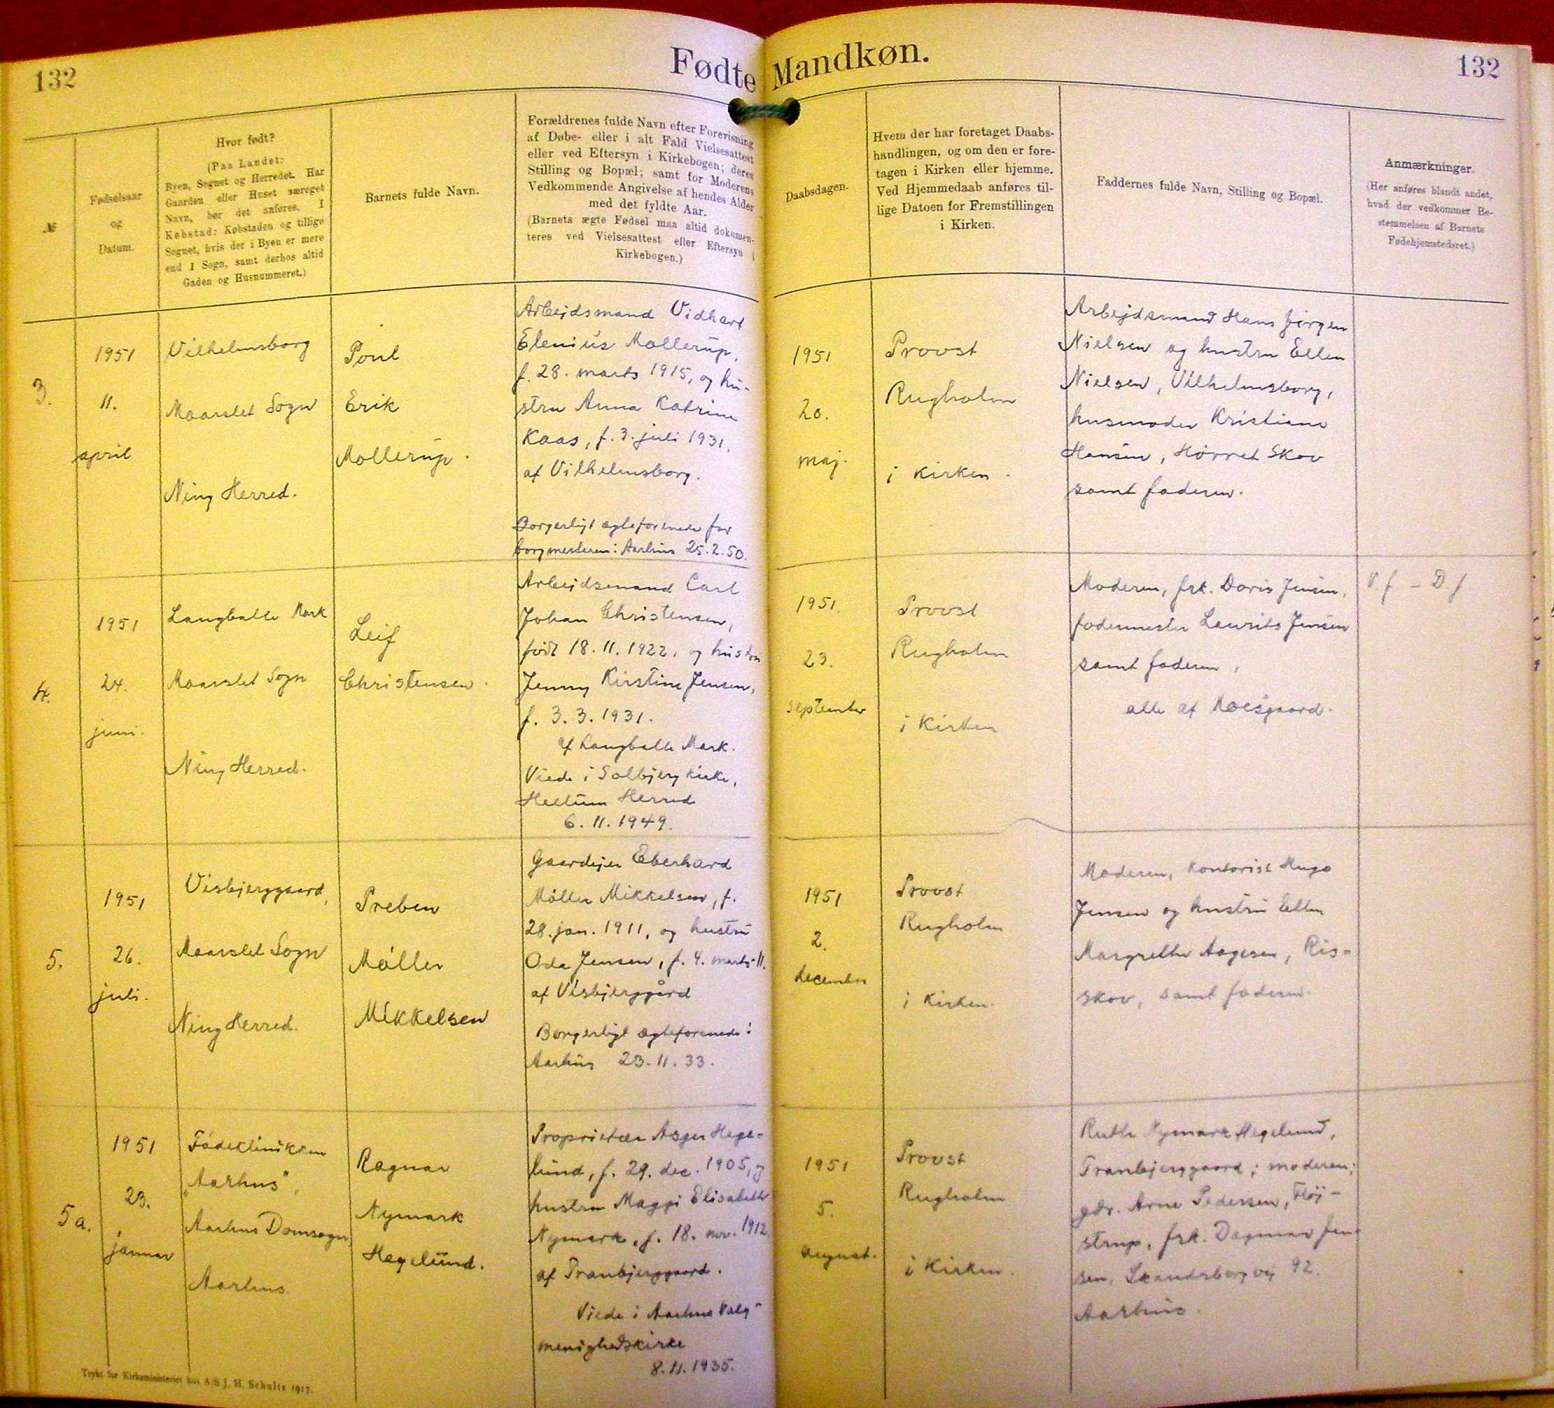 132
Fødte Mandkøn.
132
№
Fødselsaar
og
Datum.
Hvor født?
(Paa Landet:
Byen, Sognet og Herredet. Har
Gaarden eller Huset særeget
Navn, bør det anføres. I
Købstad: Købstaden og tillige
Sognet, hvis der i Byen er mere
end 1 Sogn, samt derhos altid
Gaden og Husnummeret.)
Barnets fulde Navn.
Forældrenes fulde Navn efter Forevisning
af Døbe- eller i alt Fald Vielsesattest
eller ved Eftersyn i Kirkebogen; deres
Stilling og Bopæl; samt for Moderens
Vedkommende Angivelse af hendes Alder
med det fyldte Aar.
(Barnets ægte Fødsel maa altid dokumen-
teres ved Vielsesattest eller Eftersyn i
Kirkebogen.)
Daabsdagen.
Hvem der har foretaget Daabs-
handlingen, og om den er fore-
tagen i Kirken eller hjemme.
Ved Hjemmedaab anføres til-
lige Datoen for Fremstillingen
i Kirken.
Faddernes fulde Navn, Stilling og Bopæl.
Anmærkninger.
(Her anføres blandt andet,
hvad der vedkommer Be-
stemmelsen af Barnets
Fødehjemstedsret.)
3.
1951
11.
april
Vilhelmsborg
Maarslet Sogn
Ning Herred.
Poul
Erik
Møllerup.
Arbejdsmand Vidhart
Elenius Møllerup,
f. 28. marts 1915, og hu-
stru Anna Katrine
Kaas, f. 3. juli 1931.
af Vilhelmsborg.
Borgerligt ægteforenede for
borgmesteren i Aarhus 25.2.50.
1951
20.
maj.
Provst
Rugholm
i Kirken.
Arbejdsmand Hans Jørgen
Nielsen og hustru Ellen
Nielsen, Vilhelmsborg,
husmoder Kristiane
Hansen, Hørret Skov
samt faderen.
4.
1951
24.
juni.
Langballe Mark
Maarslet Sogn
Ning Herred.
Leif
Christensen.
Arbejdsmand Carl
Johan Christensen,
født 18.11.1922, og hustru
Jenny Kirstine Jensen,
f. 3.3.1931.
af Langballe Mark.
Viede i Solbjerg Kirke,
Herred
6.11.1949.
1951.
23.
september
Provst
Rugholm
i Kirken
Moderen, frk. Doris Jensen,
fodermester Laurits Jensen
samt faderen,
alle af Moesgaard.
5.
1951
26.
juli.
Visbjerggaard,
Maarslet Sogn
Ning Herred.
Preben
Møller
Mikkelsen
Gaardejer Eberhard
Møller Mikkelsen, f.
28. jan. 1911, og hustru
Oda Jensen, f. 4. marts 11.
af Visbjerggård
Borgerligt ægteforenede i
Aarhus 23.11.33.
1951
2.
december
Provst
Rugholm
i Kirken.
Moderen, kontorist Hugo
Jensen og hustru Ellen
Margrethe Aagesen, Ris-
skov, samt faderen.
5a.
1951
23.
januar
Fødeklinikken
„Aarhus",
Aarhus Domsogn,
Aarhus
Ragnar
Nymark
Hegelund.
Proprietær Asger Hege-
lund, f. 29. dec. 1905, og
hustru Maggi Elisabeth
Nymark, f. 18. nov. 1912
af Tranbjerggaard.
Viede i Aarhus Valg-
menighedskirke
8.11.1935.
1951
5.
august.
Provst
Rugholm
i Kirken.
Ruth Nymark Hegelund,
Tranbjerggaard; moderen;
gdr. Arne Pedersen, Fløj-
strup, frk. Dagmar Jen-
sen, Skanderborgvej 92.
Aarhus.
Trykt for Kirkeministeriet hos A/S J. H. Schultz 1917.